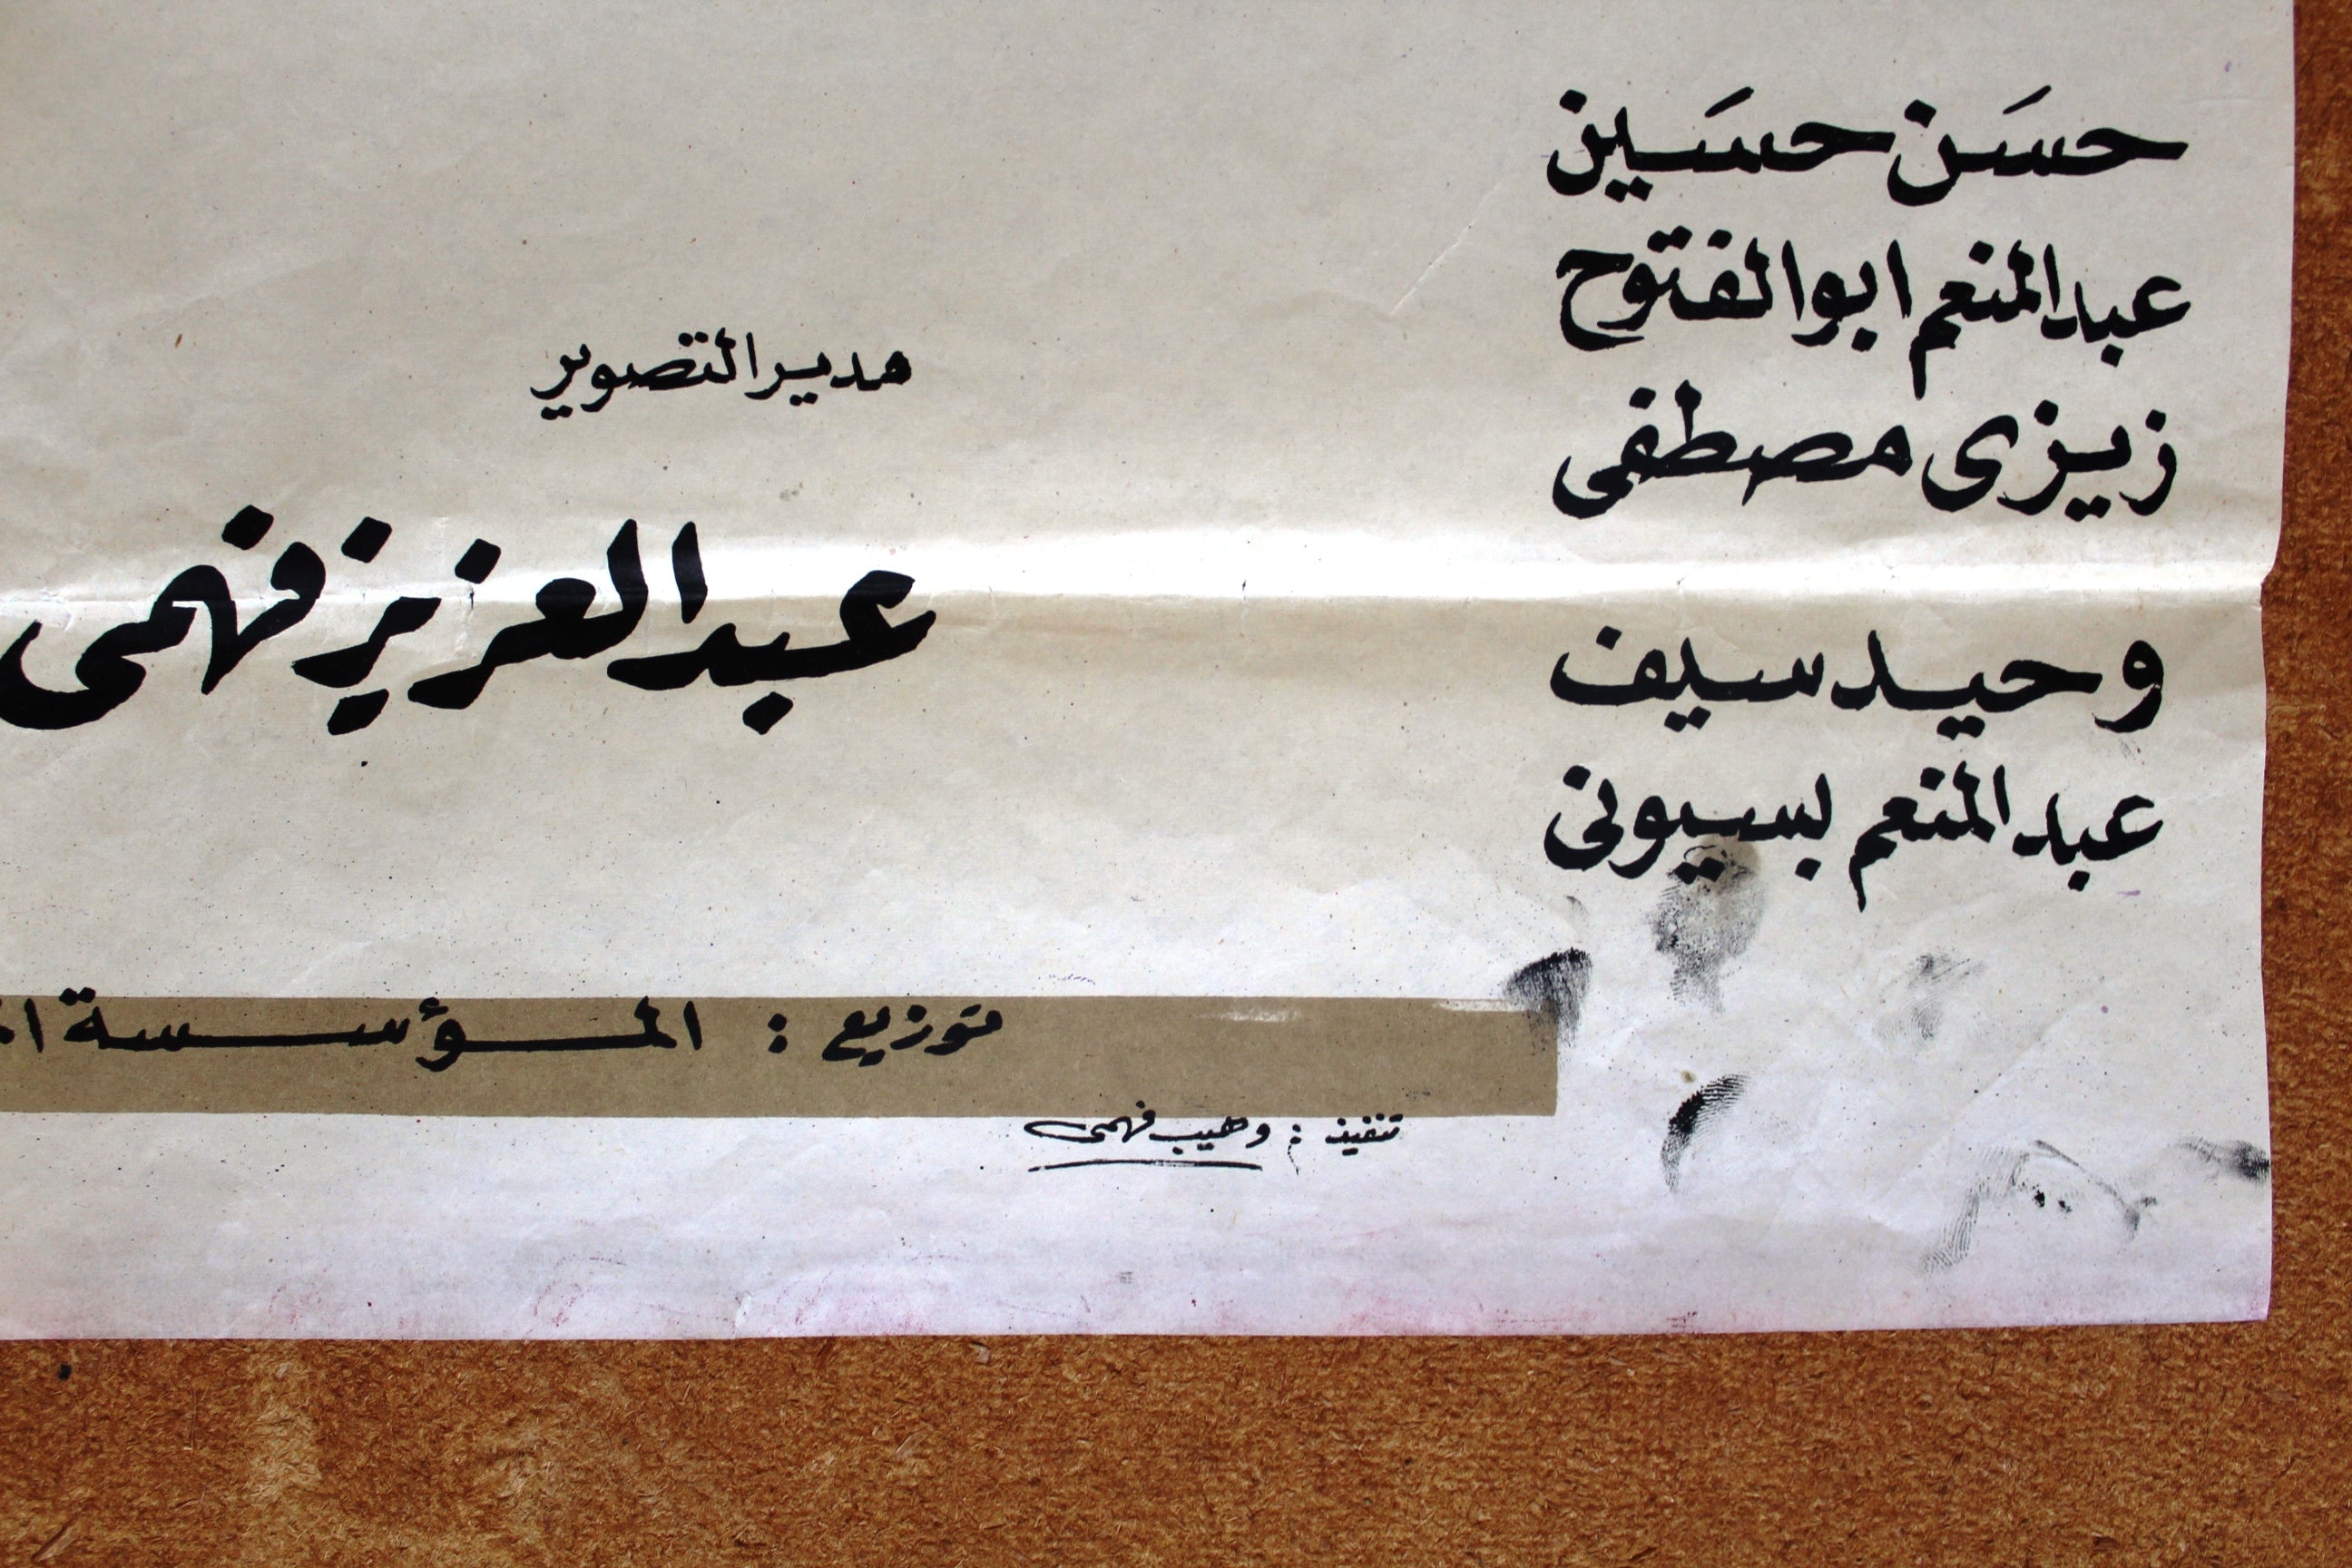 حسَن حسَين
عبد المنعم ابو الفتوح
زيزى مصطفى
وحيد سيف
عبد المنعم بسيونى
مدير التصوير
عبد العزيز فهمى
توزيع : المؤسسة
تنفيذ : وهيب فهمى